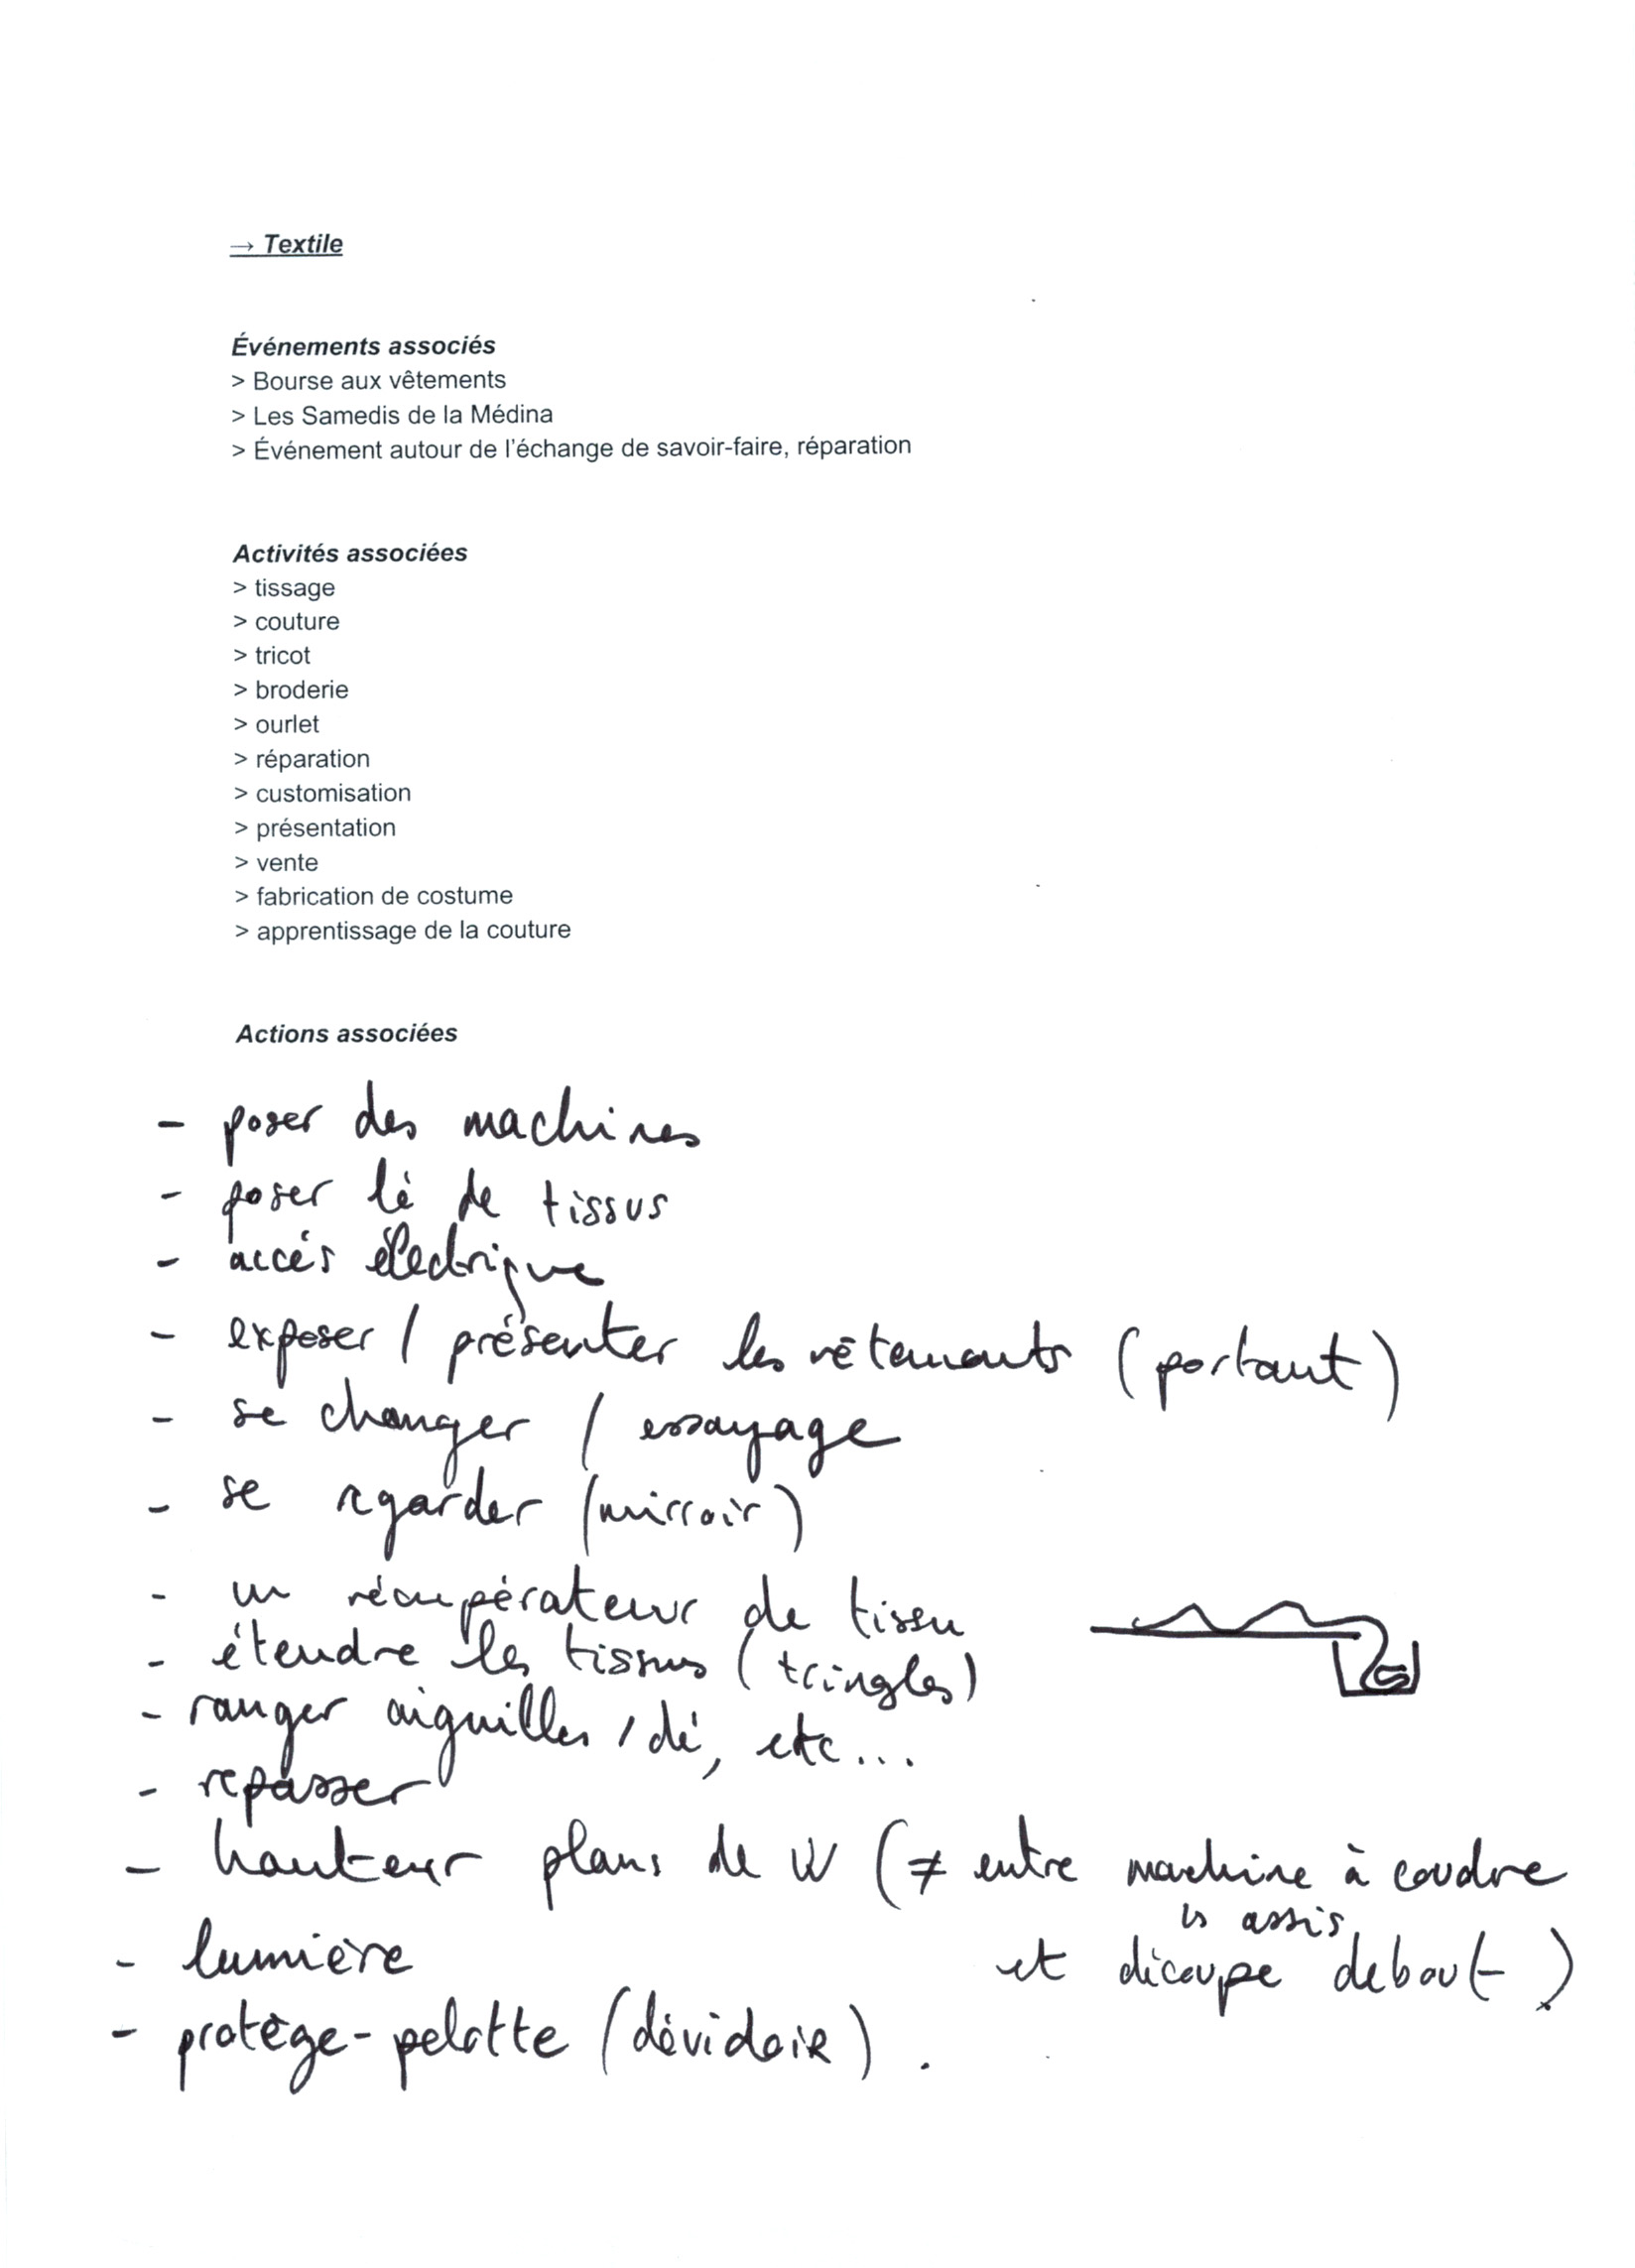 → Textile
Événements associés
> Bourse aux vêtements
> Les Samedis de la Médina
> Événement autour de l'échange de savoir-faire, réparation
Activités associées
> tissage
> couture
> tricot
> broderie
> ourlet
> réparation
> customisation
> présentation
> vente
> fabrication de costume
> apprentissage de la couture
Actions associées
- poser des machines
- poser lé de tissus
- accés électrique
- exposer / présenter les vêtements (portant)
- se changer / essayage
- se regarder (mirroir)
- un récupérateur de tissu
- étendre les tissus (tringles)
- ranger aiguilles / dé, etc...
- repasser
- hauteur plans de W (≠ entre machine à coudre
↳ assis
et découpe debout)
- lumière
- protège-pelotte (dévidoir).